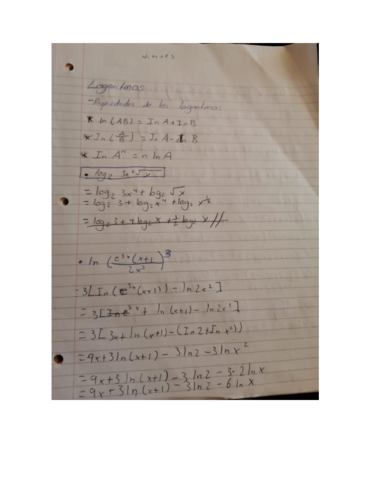 Viernes
Logaritmos
- Propiedades de los logaritmos
* ln(AB) = ln A + ln B
* ln(A/B) = ln A - ln B
* ln Aⁿ = n ln A
• log₂ 3x⁴√x
= log₂ 3x⁴ + log₂ √x
= log₂ 3 + log₂ x⁴ + log₂ x^½
= log₂ 3 + 4 log₂ x + ½ log₂ x //
• ln (e^3x (x+1) / 2x²)³
= 3[ln(e^3x (x+1)) - ln 2x²]
= 3[ln e^3x + ln(x+1) - ln 2x²]
= 3[3x + ln(x+1) - (ln 2 + ln x²)]
= 9x + 3 ln(x+1) - 3 ln 2 - 3 ln x²
= 9x + 3 ln(x+1) - 3 ln 2 - 3·2 ln x
= 9x + 3 ln(x+1) - 3 ln 2 - 6 ln x